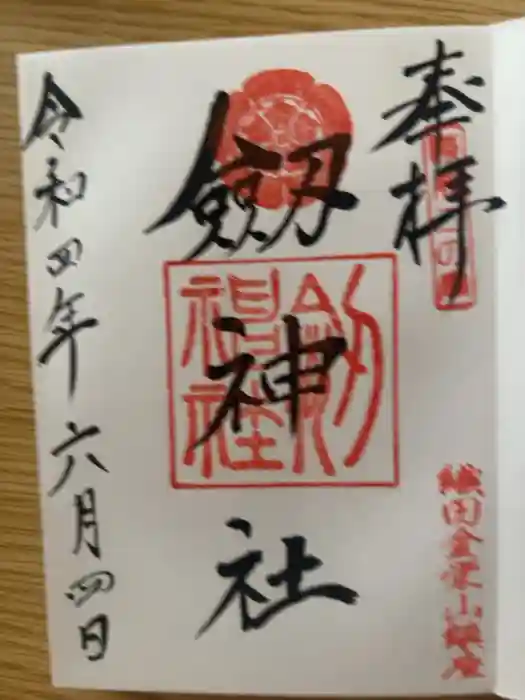 奉拝
織田金栄山鎮座
劔神社
劔神社
令和四年六月四日